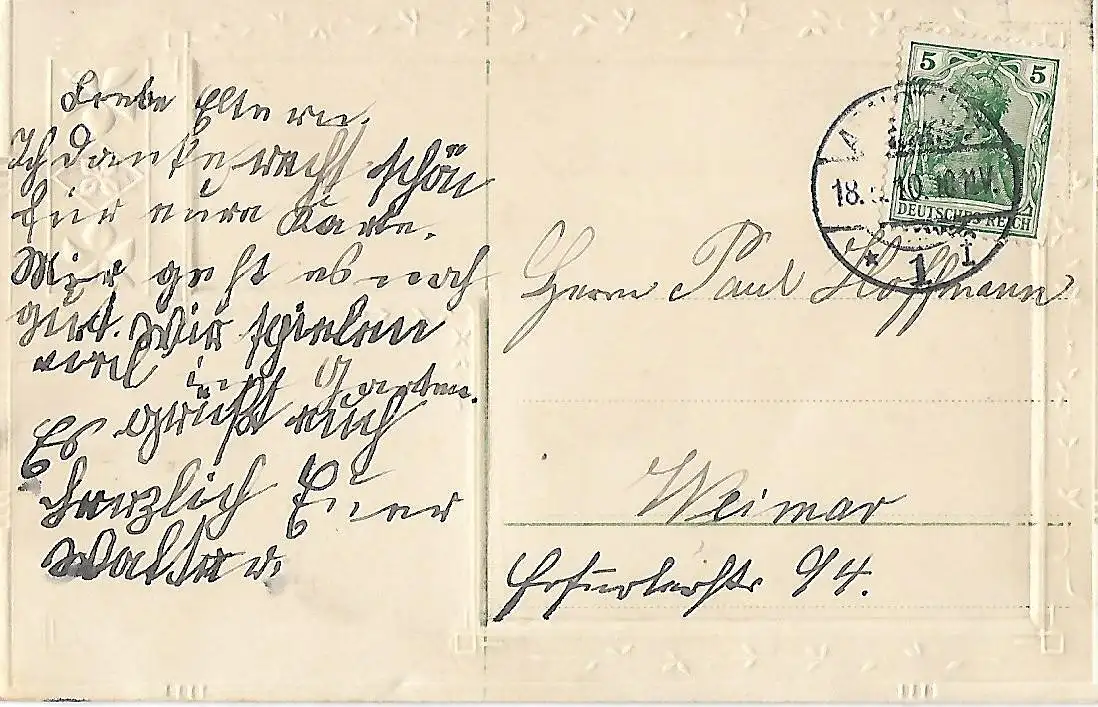 Liebe Eltern.
Ich danke recht schön
für eure Karte.
Mir geht es noch
gut. Wir spielen
viel im Garten.
Es grüßt euch
herzlich Euer
Walter.
5 5
DEUTSCHES REICH
18. 10. 10-11V.
* 1 I
Herrn Paul Hoffmann
Weimar
Erfurterstr 94.